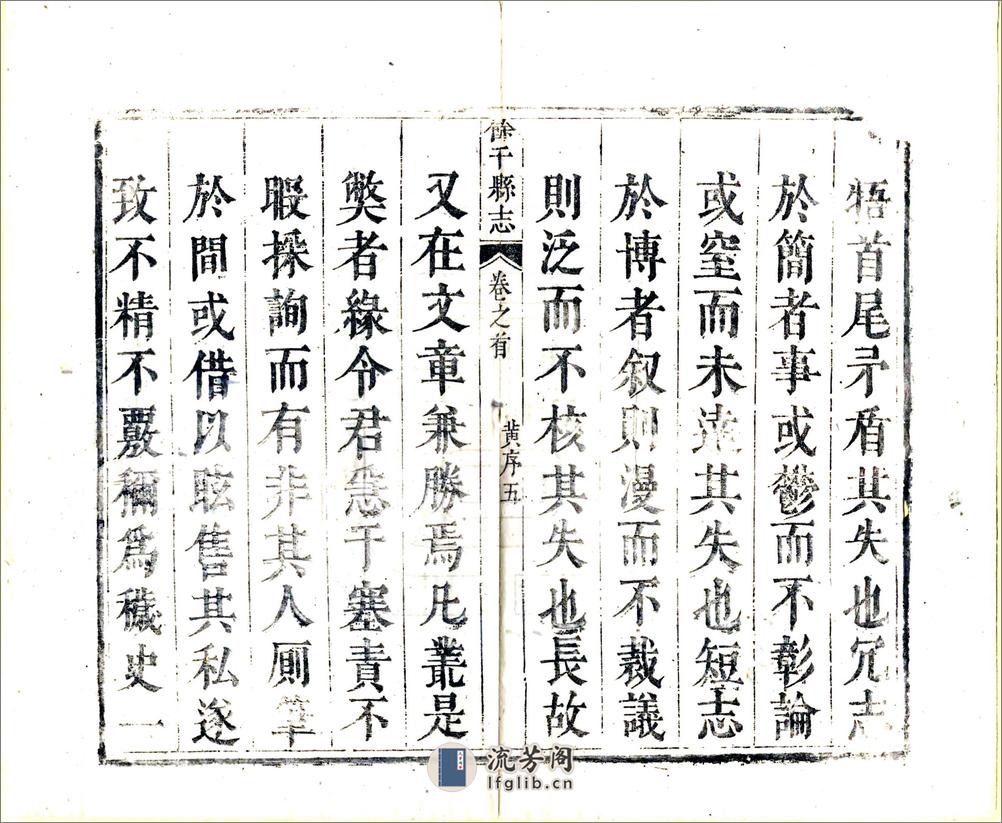 牾首尾矛盾其失也冗志
於簡者事或鬱而不彰論
或窒而未達其失也短志
於博者叙則漫而不裁議
則泛而不核其失也長故
餘干縣志
卷之首
黄序五
又在文章兼勝焉凡叢是
獘者緣令君急于塞責不
暇採詢而有非其人厠筆
於間或借以眩售其私遂
致不精不覈穪爲穢史一
流芳阁
lfglib.cn